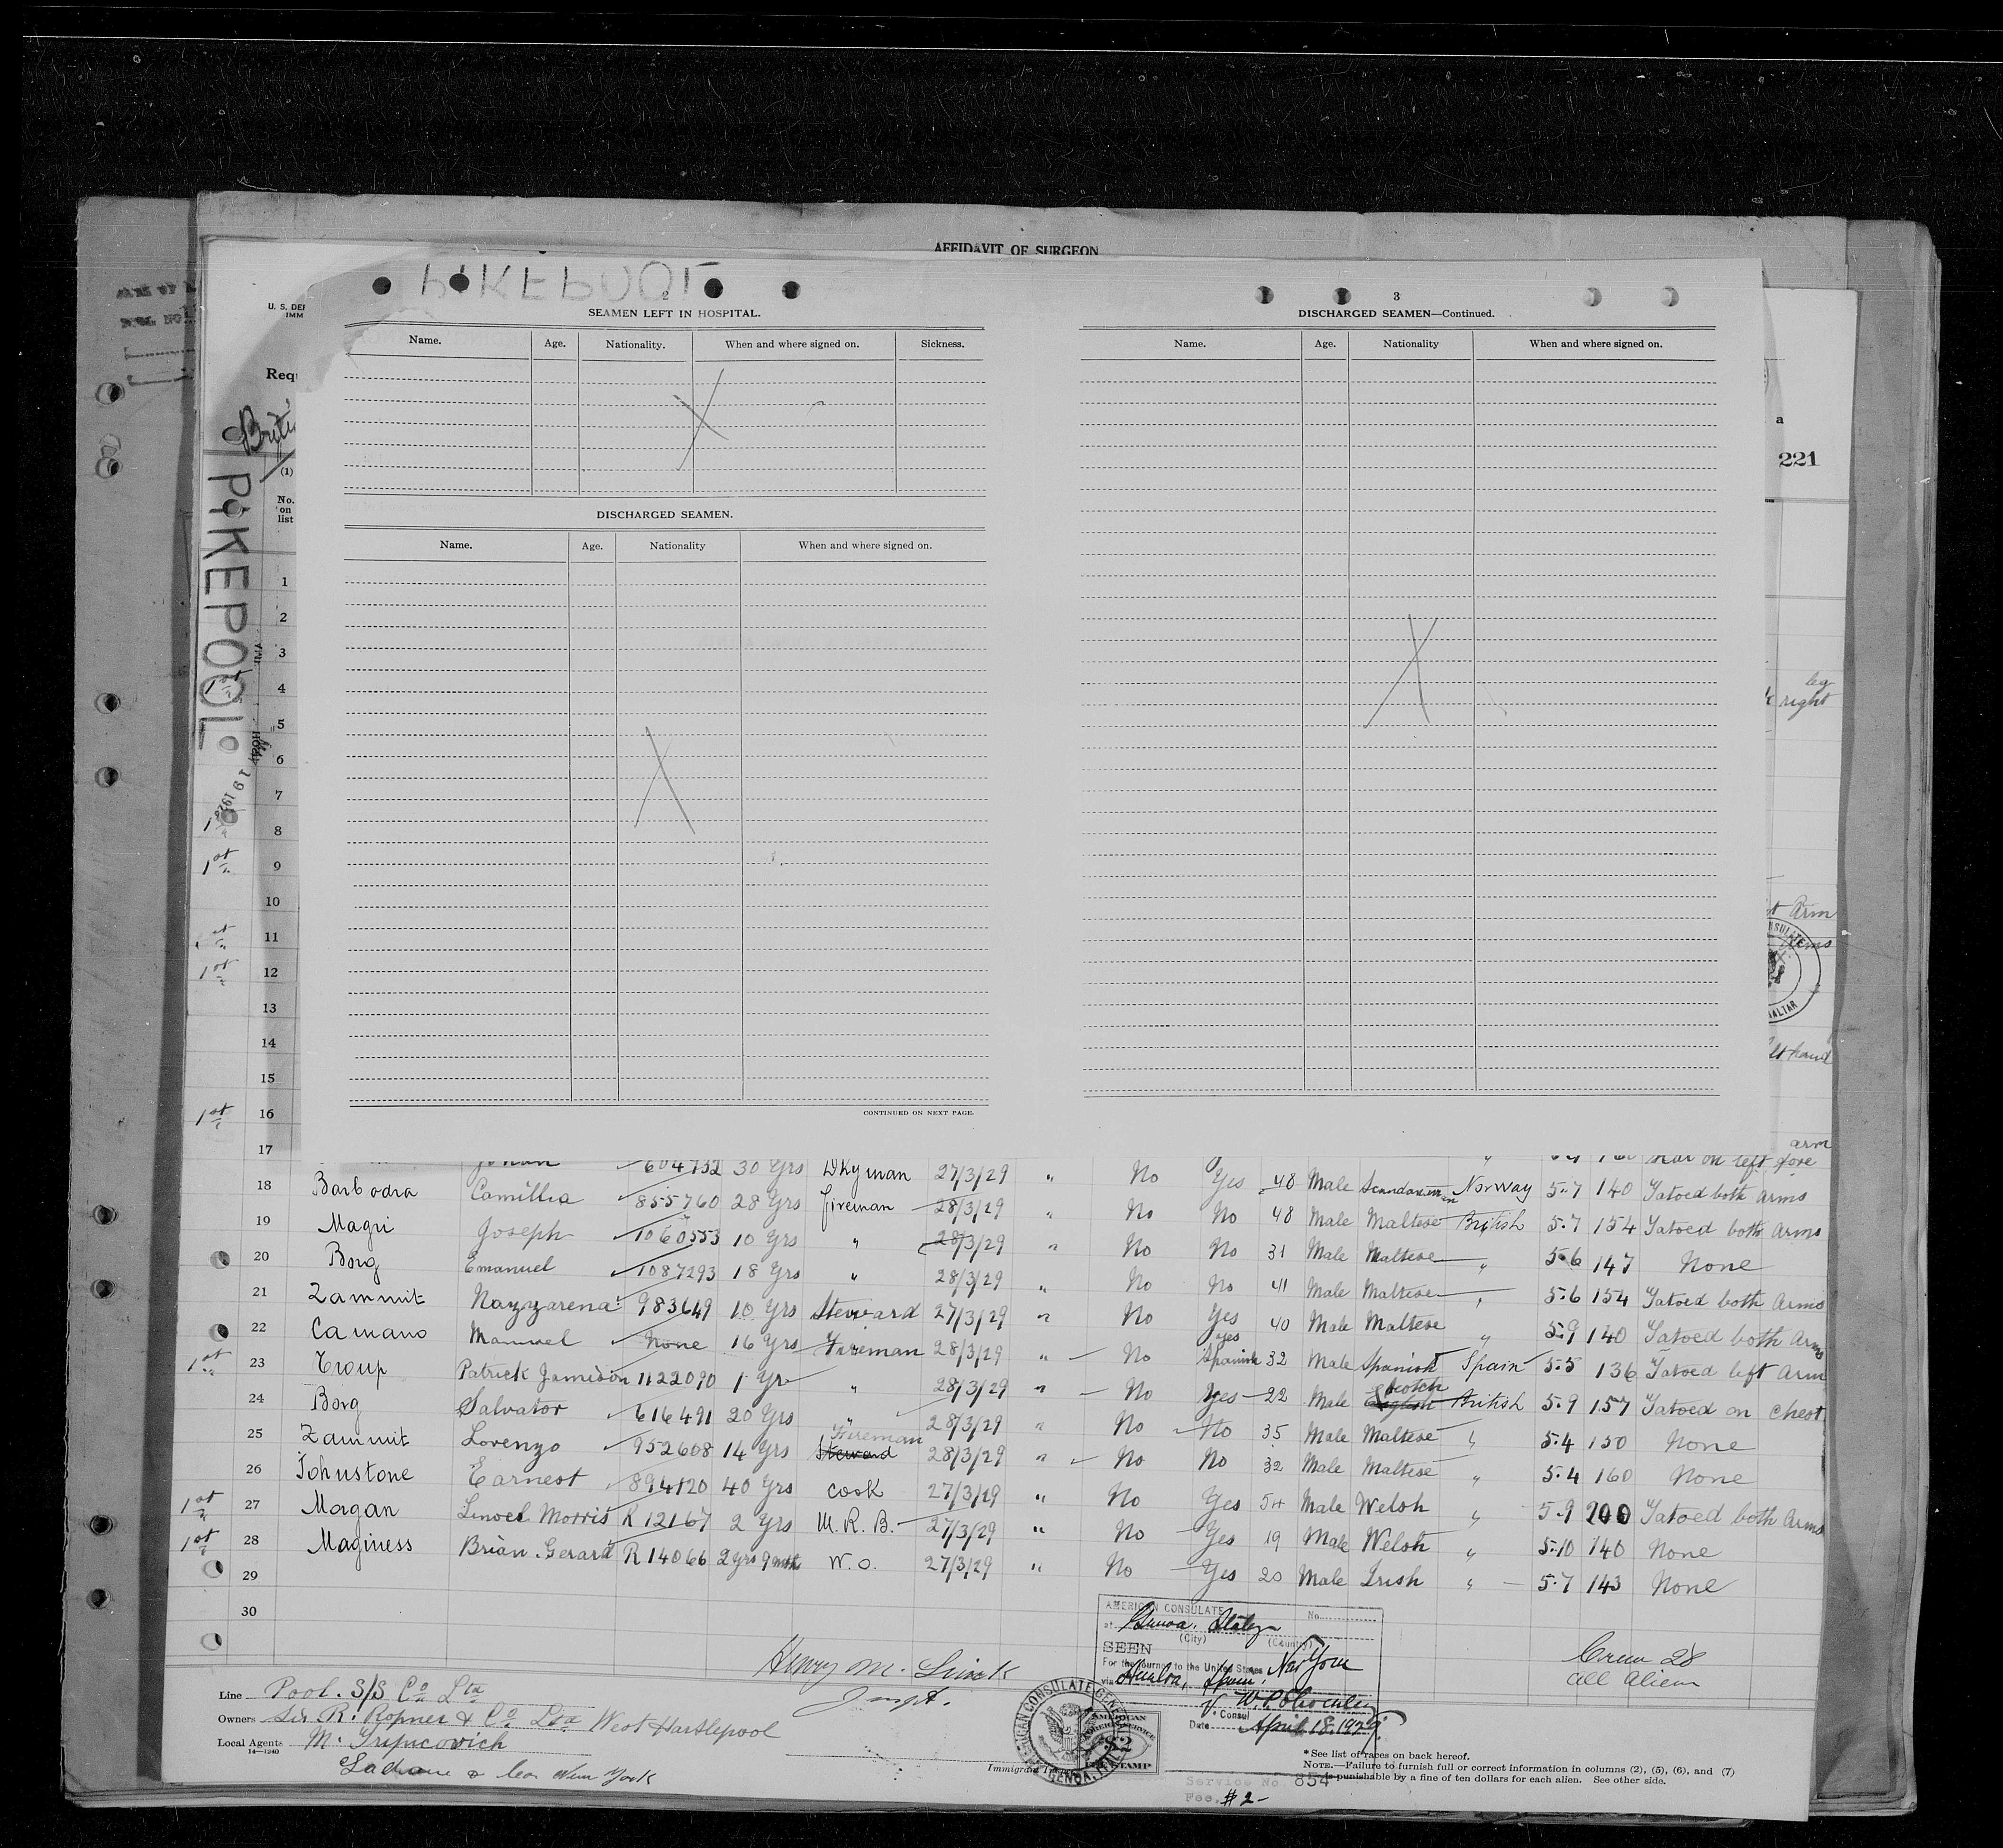 AFFIDAVIT OF SURGEON
PIKEPOOL
U. S. DEP
IMM
2
SEAMEN LEFT IN HOSPITAL.
Name. Age. Nationality. When and where signed on. Sickness.
DISCHARGED SEAMEN.
Name. Age. Nationality When and where signed on.
CONTINUED ON NEXT PAGE.
3
DISCHARGED SEAMEN—Continued.
Name. Age. Nationality When and where signed on.
a
221
Requ
Briti
(1)
No.
on
list
PIKEPOOL
leg
right
1
2
3
4
5
6
7
8
1st 9
10
11
1st 12
13
14
15
1st 16
17
Arm
arms
hand
arm
604732 30 Yrs Dkyman 27/3/29 " No Yes 48 Male Scandanavian Norway 5-7 140 Tatoed both arms
18 Barbodra Camillia 855760 28 Yrs fireman 28/3/29 " No No 48 Male Maltese British 5.7 154 Tatoed both arms
19 Magri Joseph 1060553 10 Yrs " 28/3/29 " No No 31 Male Maltese " 5.6 147 None
20 Borg Emanuel 1087293 18 Yrs " 28/3/29 " No No 41 Male Maltese " 5.6 154 Tatoed both Arms
21 Zammit Nazzarena 983649 10 Yrs Steward 27/3/29 " No Yes 40 Male Maltese " 5.9 140 Tatoed both Arms
22 Camano Manuel None 16 Yrs Fireman 28/3/29 " No yes Spanish 32 Male Spanish Spain 5.5 136 Tatoed left Arm
1st 23 Troup Patrick Jamidon 1122090 1 Yr " 28/3/29 " No Yes 22 Male English Scotch British 5.9 157 Tatoed on Chest
24 Borg Salvator 616491 20 Yrs " 28/3/29 " No No 35 Male Maltese " 5.4 150 None
25 Zammit Lorenzo 952608 14 Yrs Steward Fireman 28/3/29 " No No 32 Male Maltese " 5.4 160 None
26 Johnstone Earnest 894120 40 Yrs cook 27/3/29 " No Yes 54 Male Welsh " 5.9 200 Tatoed both Arms
1st 27 Morgan Linoel Morris R 12167 2 Yrs M. R. B. 27/3/29 " No Yes 19 Male Welsh " 5.10 140 None
1st 28 Maginess Brian Gerard R 14066 2 yrs 9 mnths W. O. 27/3/29 " No Yes 20 Male Irish " 5.7 143 None
29
30
AMERICAN CONSULATE No.
at Genoa, Italy
(City) (Country)
SEEN
For the journey to the United States New York
via Huelva, Spain,
Consul
Date April 18, 1929
Crew 28
all Alien
Henry M.
Inspt.
Line Pool. S/S Co Lta
Owners Sir R. Ropner & Co Lta West Hartlepool
Local Agents M. Tripcovich
14—1240
New York
AMERICAN CONSULATE GENERAL
GENOA, ITALY
AMERICAN FOREIGN SERVICE
$2
FEE STAMP
Immigrant I
Service No. 854
Fee, $2-
*See list of races on back hereof.
NOTE.—Failure to furnish full or correct information in columns (2), (5), (6), and (7)
is punishable by a fine of ten dollars for each alien. See other side.